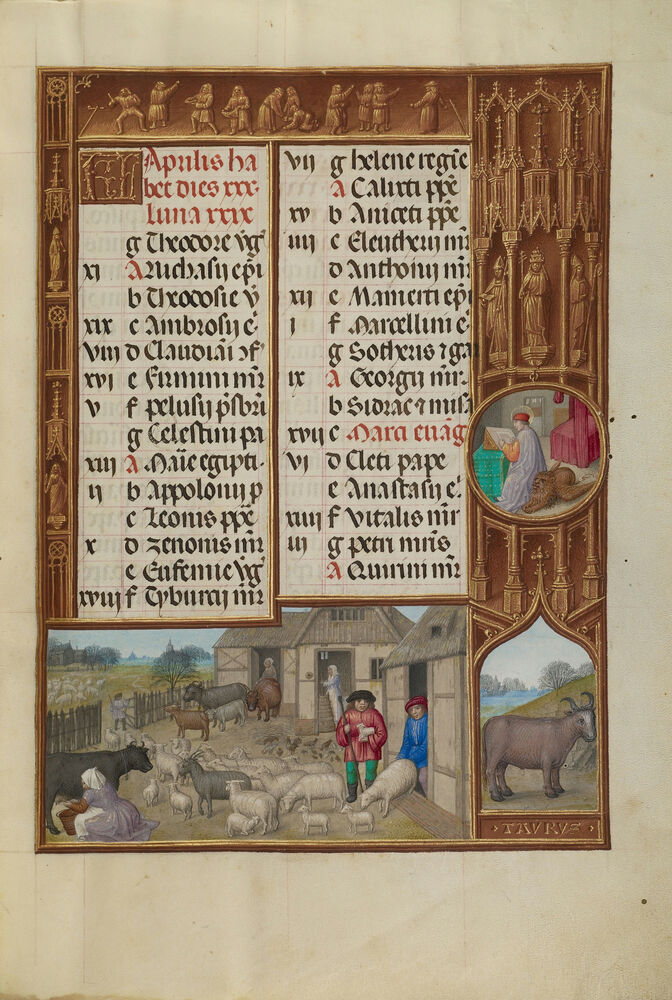 KL Aprilis ha
bet dies xxx.
luna xxix
g Theodore vg̃
xi A Ruchasij ep̃i
b Theodosie v̄
xix c Ambrosij ē
viii d Claudiãi ɔf
xvi e Firmini mr̃
v f pelusij p̃sbri
g Celestini pa
xiii A Maīe egipti.
ii b Appolonij p
c Leonis pp̃e
x d zenonis mr̃
e Eufemie vg̃
xviii f Tyburcij mr̃
vii g helene regīe
A Calixti pp̃e
xv b Aniceti pp̃e
iiii c Eleutherij mr̃
d Anthonij mr̃
xii e Mamerti ep̃i
i f Marcellini ē
g Sotheris ⁊ gai
ix A Georgij mr̃.
b Sidrac ⁊ misa
xvii c Marci euãg
vi d Cleti pape
e Anastasij ē.
xiiii f vitalis mr̃
iii g petri mr̃is
A Quirini mr̃
TAVRVS